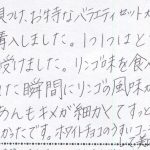 見つけ、お得なバラエティセットが
購入しました。1つ1つはと
受けました。リンゴ味を食べ
た瞬間にリンゴの風味が
あんもキメが細かくてすっと
かったです。ホワイトチョコのうすいコ